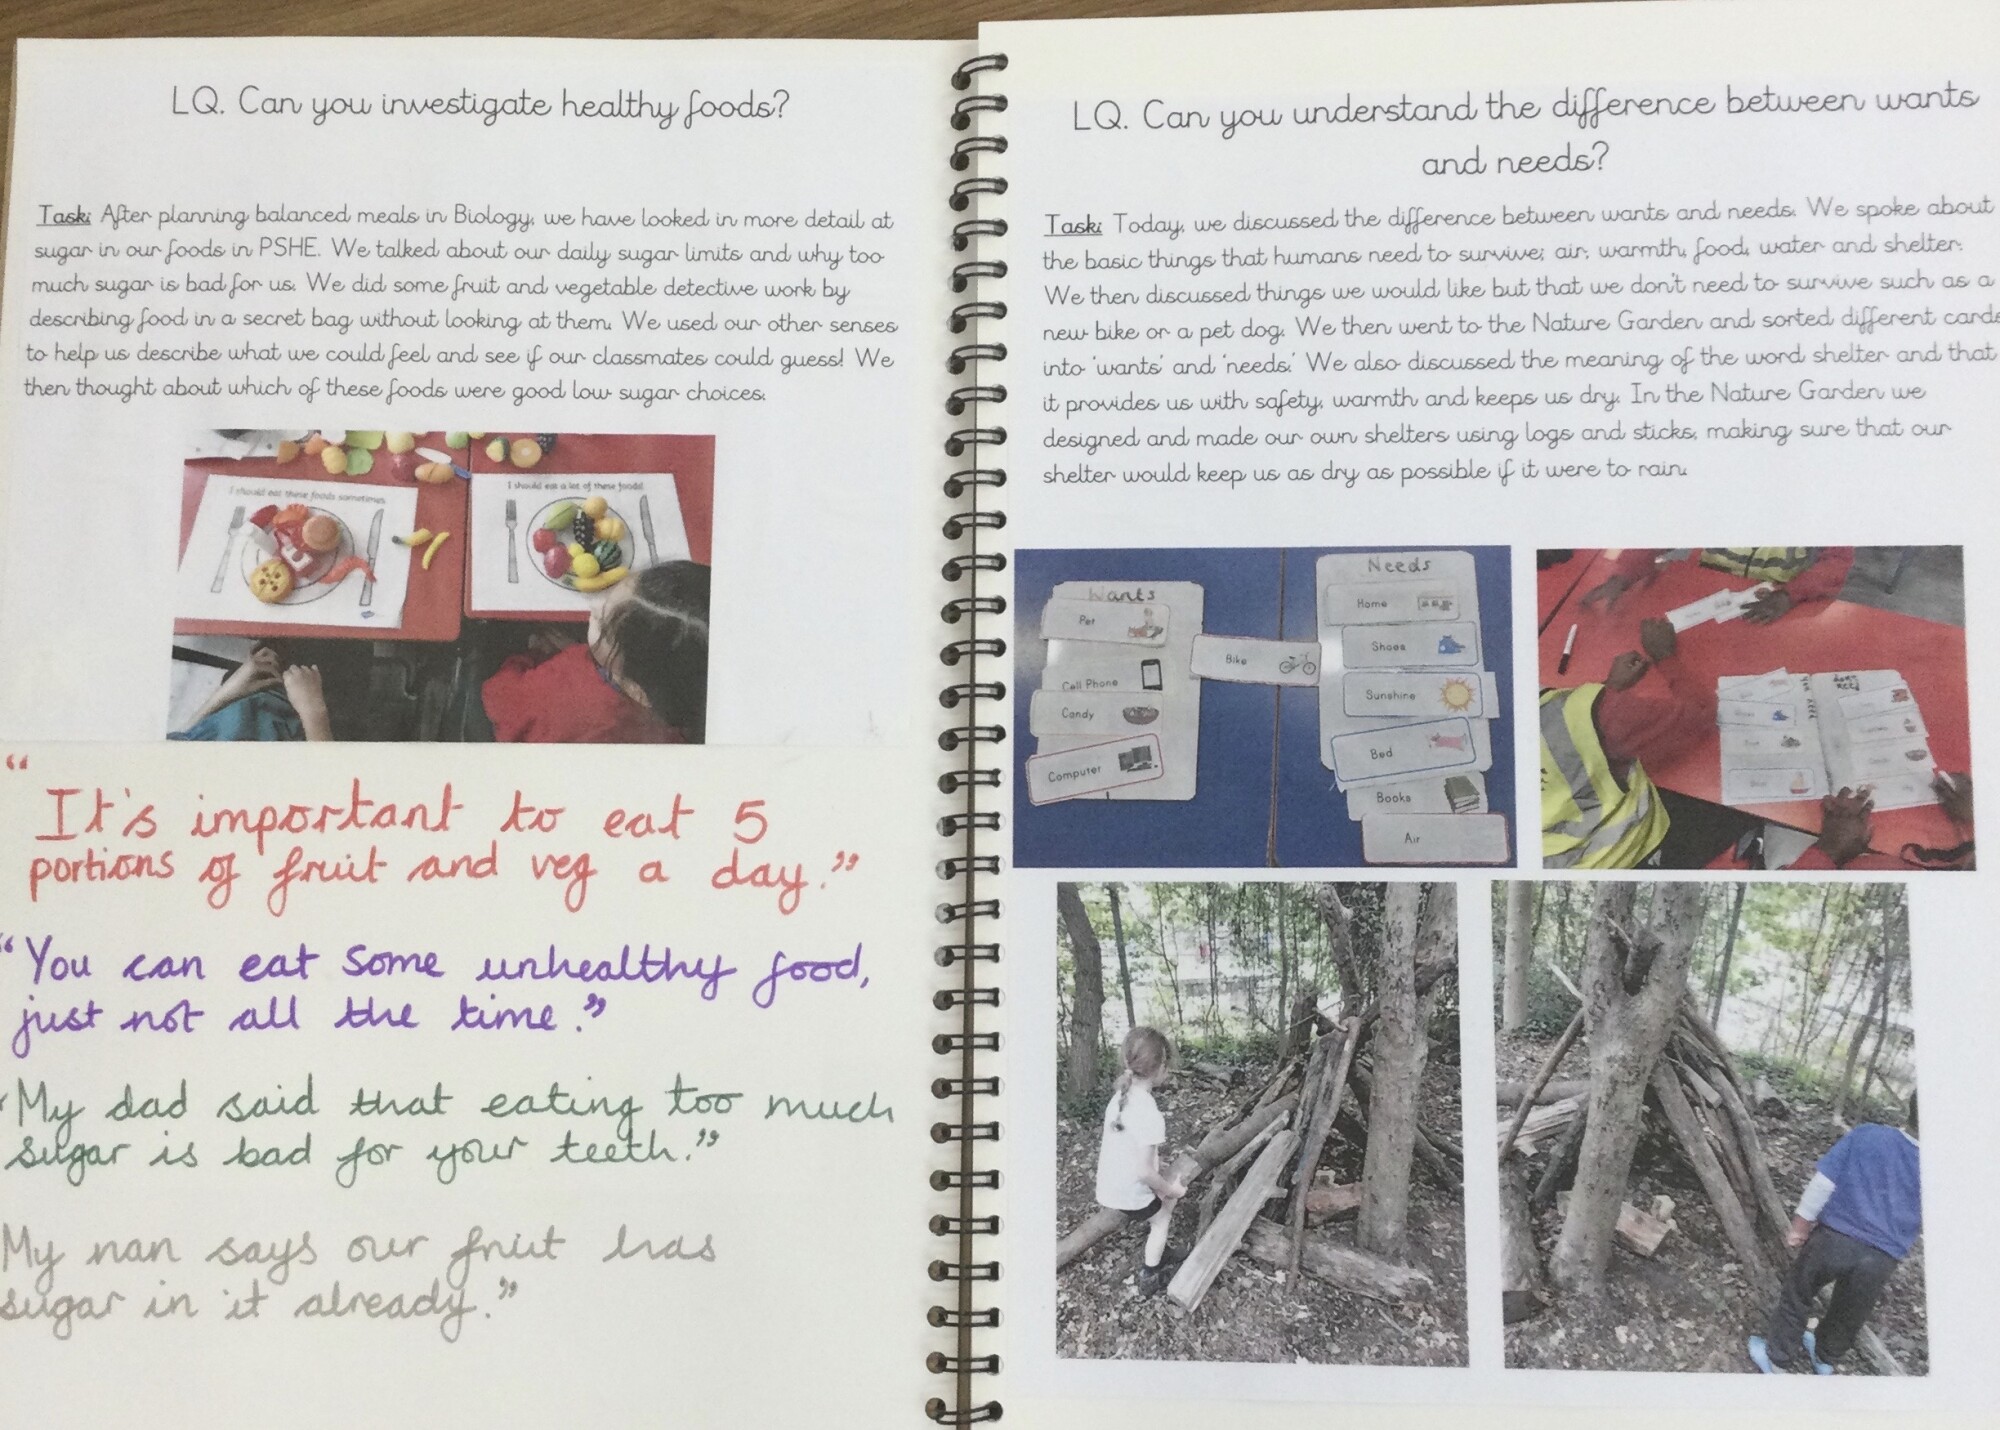 LQ. Can you investigate healthy foods?
Task: After planning balanced meals in Biology, we have looked in more detail at
sugar in our foods in PSHE. We talked about our daily sugar limits and why too
much sugar is bad for us. We did some fruit and vegetable detective work by
describing food in a secret bag without looking at them. We used our other senses
to help us describe what we could feel and see if our classmates could guess! We
then thought about which of these foods were good low sugar choices.
I should eat these foods sometimes.
I should eat a lot of these foods!
"It's important to eat 5
portions of fruit and veg a day."
"You can eat some unhealthy food,
just not all the time."
"My dad said that eating too much
sugar is bad for your teeth."
My nan says our fruit has
sugar in it already."
LQ. Can you understand the difference between wants
and needs?
Task: Today, we discussed the difference between wants and needs. We spoke about
the basic things that humans need to survive; air, warmth, food, water and shelter.
We then discussed things we would like but that we don't need to survive such as a
new bike or a pet dog. We then went to the Nature Garden and sorted different cards
into 'wants' and 'needs.' We also discussed the meaning of the word shelter and that
it provides us with safety, warmth and keeps us dry. In the Nature Garden we
designed and made our own shelters using logs and sticks, making sure that our
shelter would keep us as dry as possible if it were to rain.
Wants
Pet
Cell Phone
Candy
Computer
Bike
Needs
Home
Shoes
Sunshine
Bed
Books
Air